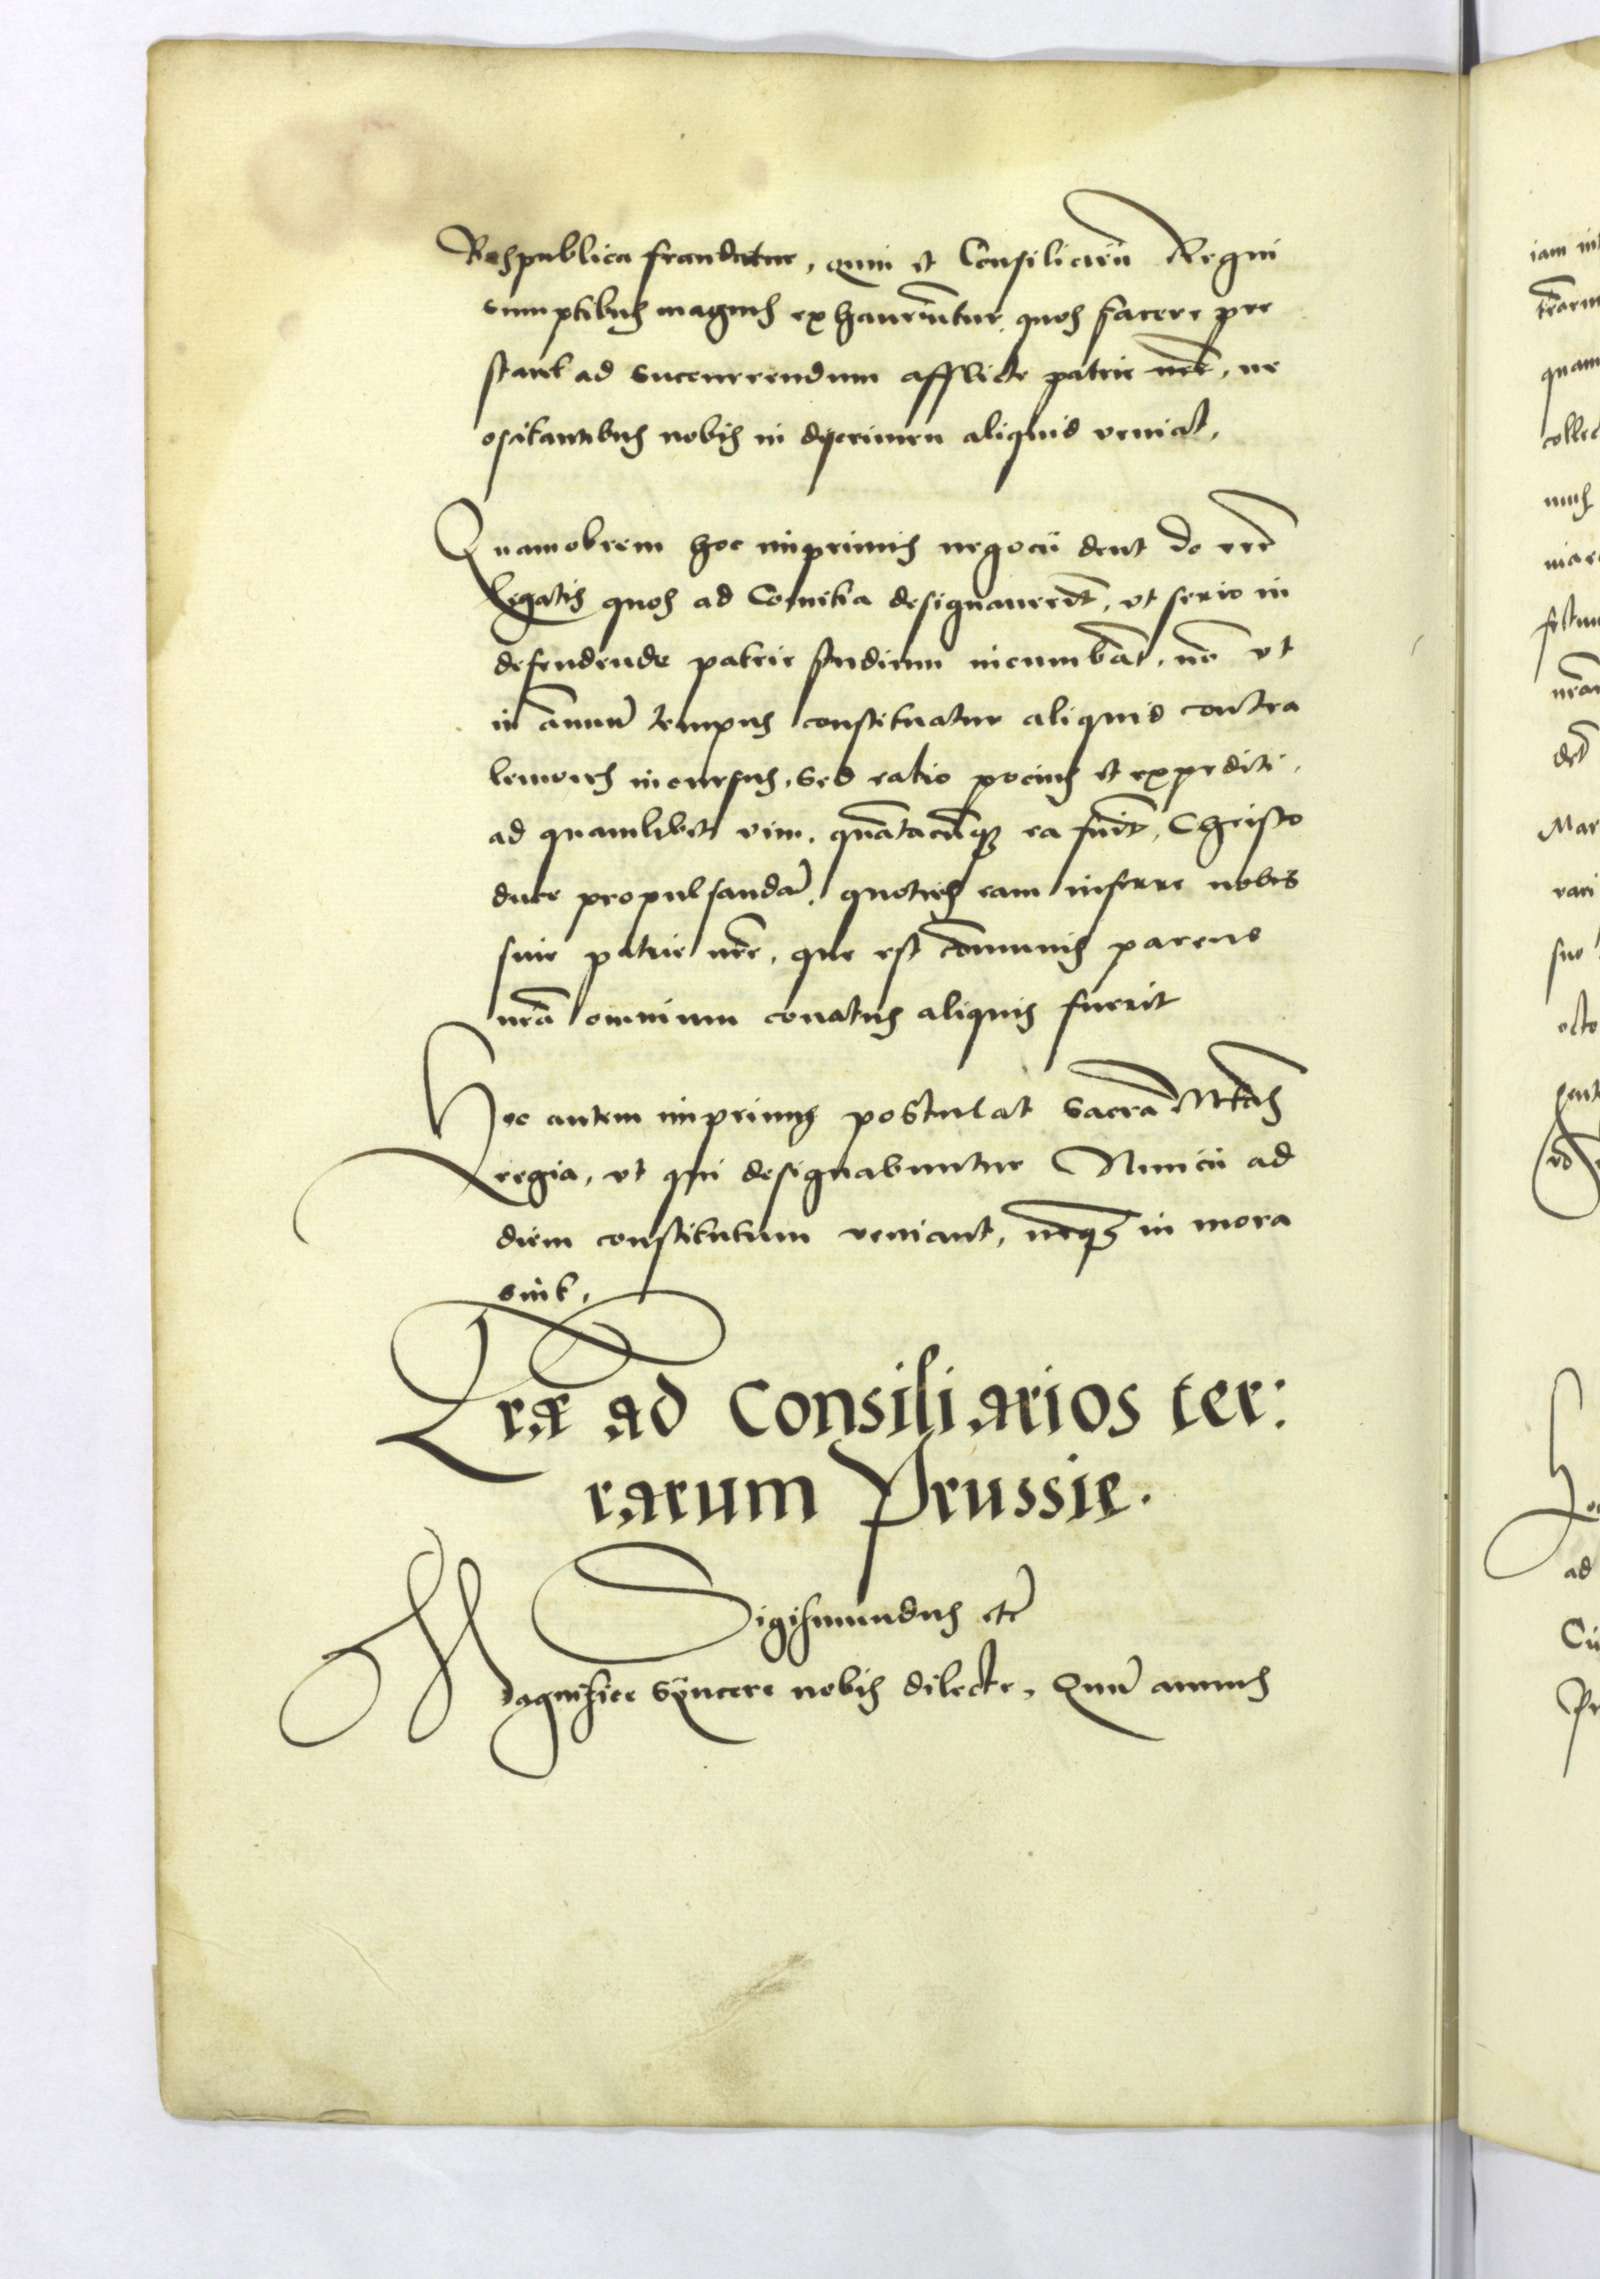 Respublica fraudatur, quin et Consiliarij Regni
sumptibus magnis exhauriũtur, quos facere pre
stant ad succurrendum afflicte patrie nr̃e, ne
ositantibus nobis in discrimen aliquid veniat,
Quamobrem hoc inprimis negocij dent do vr̃e
legatis quos ad Comitia designauerĩt, ut serio in
defendende patrie studium incumbãt, nõ ut
in ãnuũ tempus constituatur aliquid contra
leuiores incursus, sed ratio pocius et expediti,
ad quamlibet vim, quãtacũq; ea fuĩt, Christo
duce propulsandã, quoties eam inferre nobis
siue patrie nr̃e, que est cõmunis parens
nr̃ã omnium conatus aliquis fuerit
Hoc autem inprimis postulat Sacra Mt̃as
regia, ut qui designabuntur Nuncij ad
diem constitutum veniant, neq; in mora
sint,
Lr̃æ ad Consiliarios ter:
rarum Prussie.
Sigismundus etc̃
Magnifice Syncere nobis dilecte, Quũ annus
iam
quam
collec
Mar
suo
octo
ad
Pr